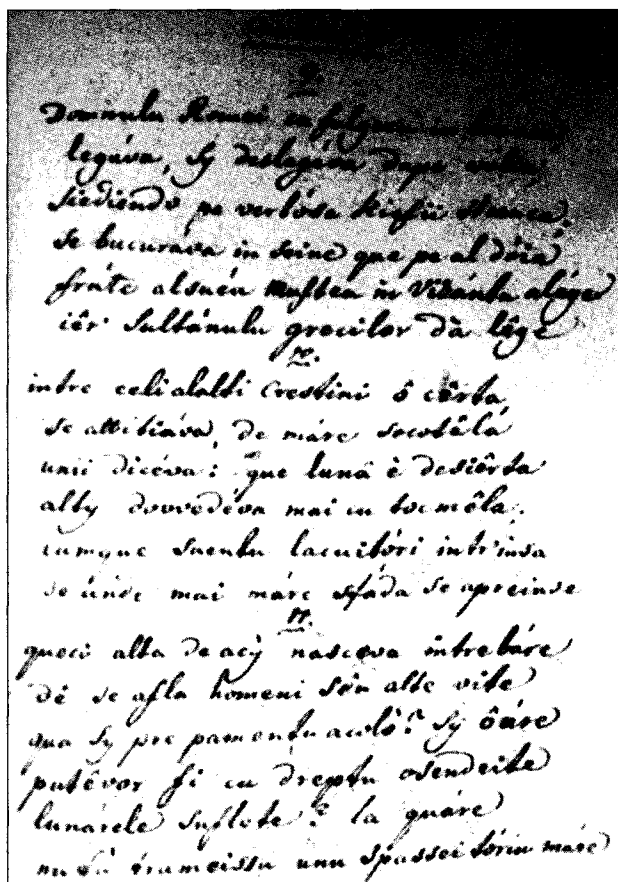 9.
Domnulu Romei cu fulgere in
legáva, sy deslegáva dupe
siediendo pe vertósa Kiefii
se bucuráva in seine que pe al dóia
fráte alsuéu Muftea in Vizántu aláge
iêr Sultánulu grecilor dà lége
10.
intre celialalti Crestini ô cêrta
se attitiáva, de máre socotêlá
unii dicéva: que lunâ è desiêrta
alty dovvedéva mai cu tocmêla.
cumque suentu lacuitóri intr'insa
se únde mai máre sfáda se apreinse
11.
quecì alta de acy nascéva intrebáre
dê se afla homeni sôu alte vite
qua sy pre pamentu acolò? Sy ôáre
putêvor fi cu dreptu osendeite
lunárele suflete? la quáre
nu unu spasseitóriu máre